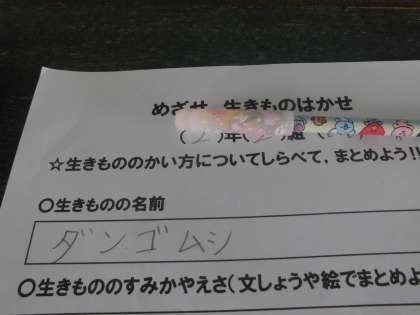 めざせ 生きものはかせ
( )年( )組
☆生きもののかい方についてしらべて,まとめよう!!
○生きものの名前
ダンゴムシ
○生きもののすみかやえさ(文しょうや絵でまとめよ